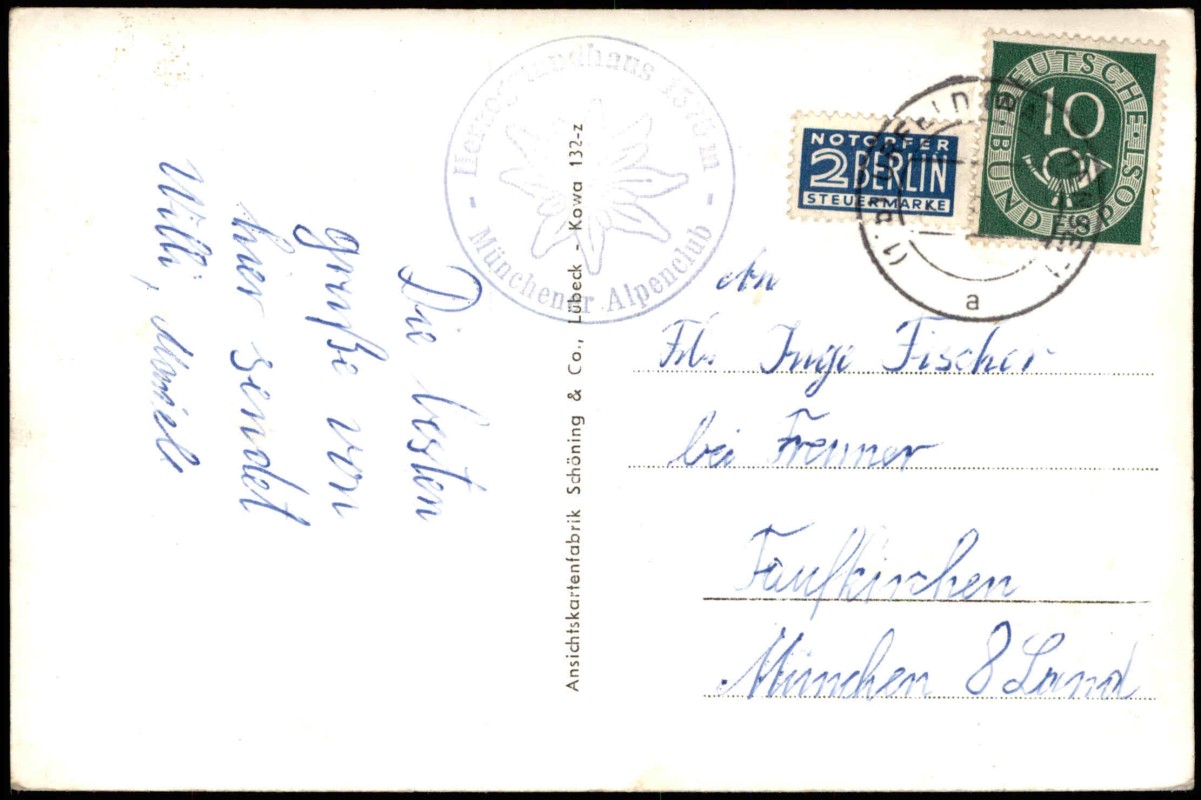 Die besten
grüße von
hier sendet
Willi,
Herzogstandhaus 1575 m
- Münchener Alpenclub -
Ansichtskartenfabrik Schöning & Co., Lübeck - Kowa 132-z
NOTOPFER
2 BERLIN
STEUERMARKE
DEUTSCHE BUNDESPOST
10
a
An
Frl. Inge Fischer
bei Frenner
Taufkirchen
München 8 Land